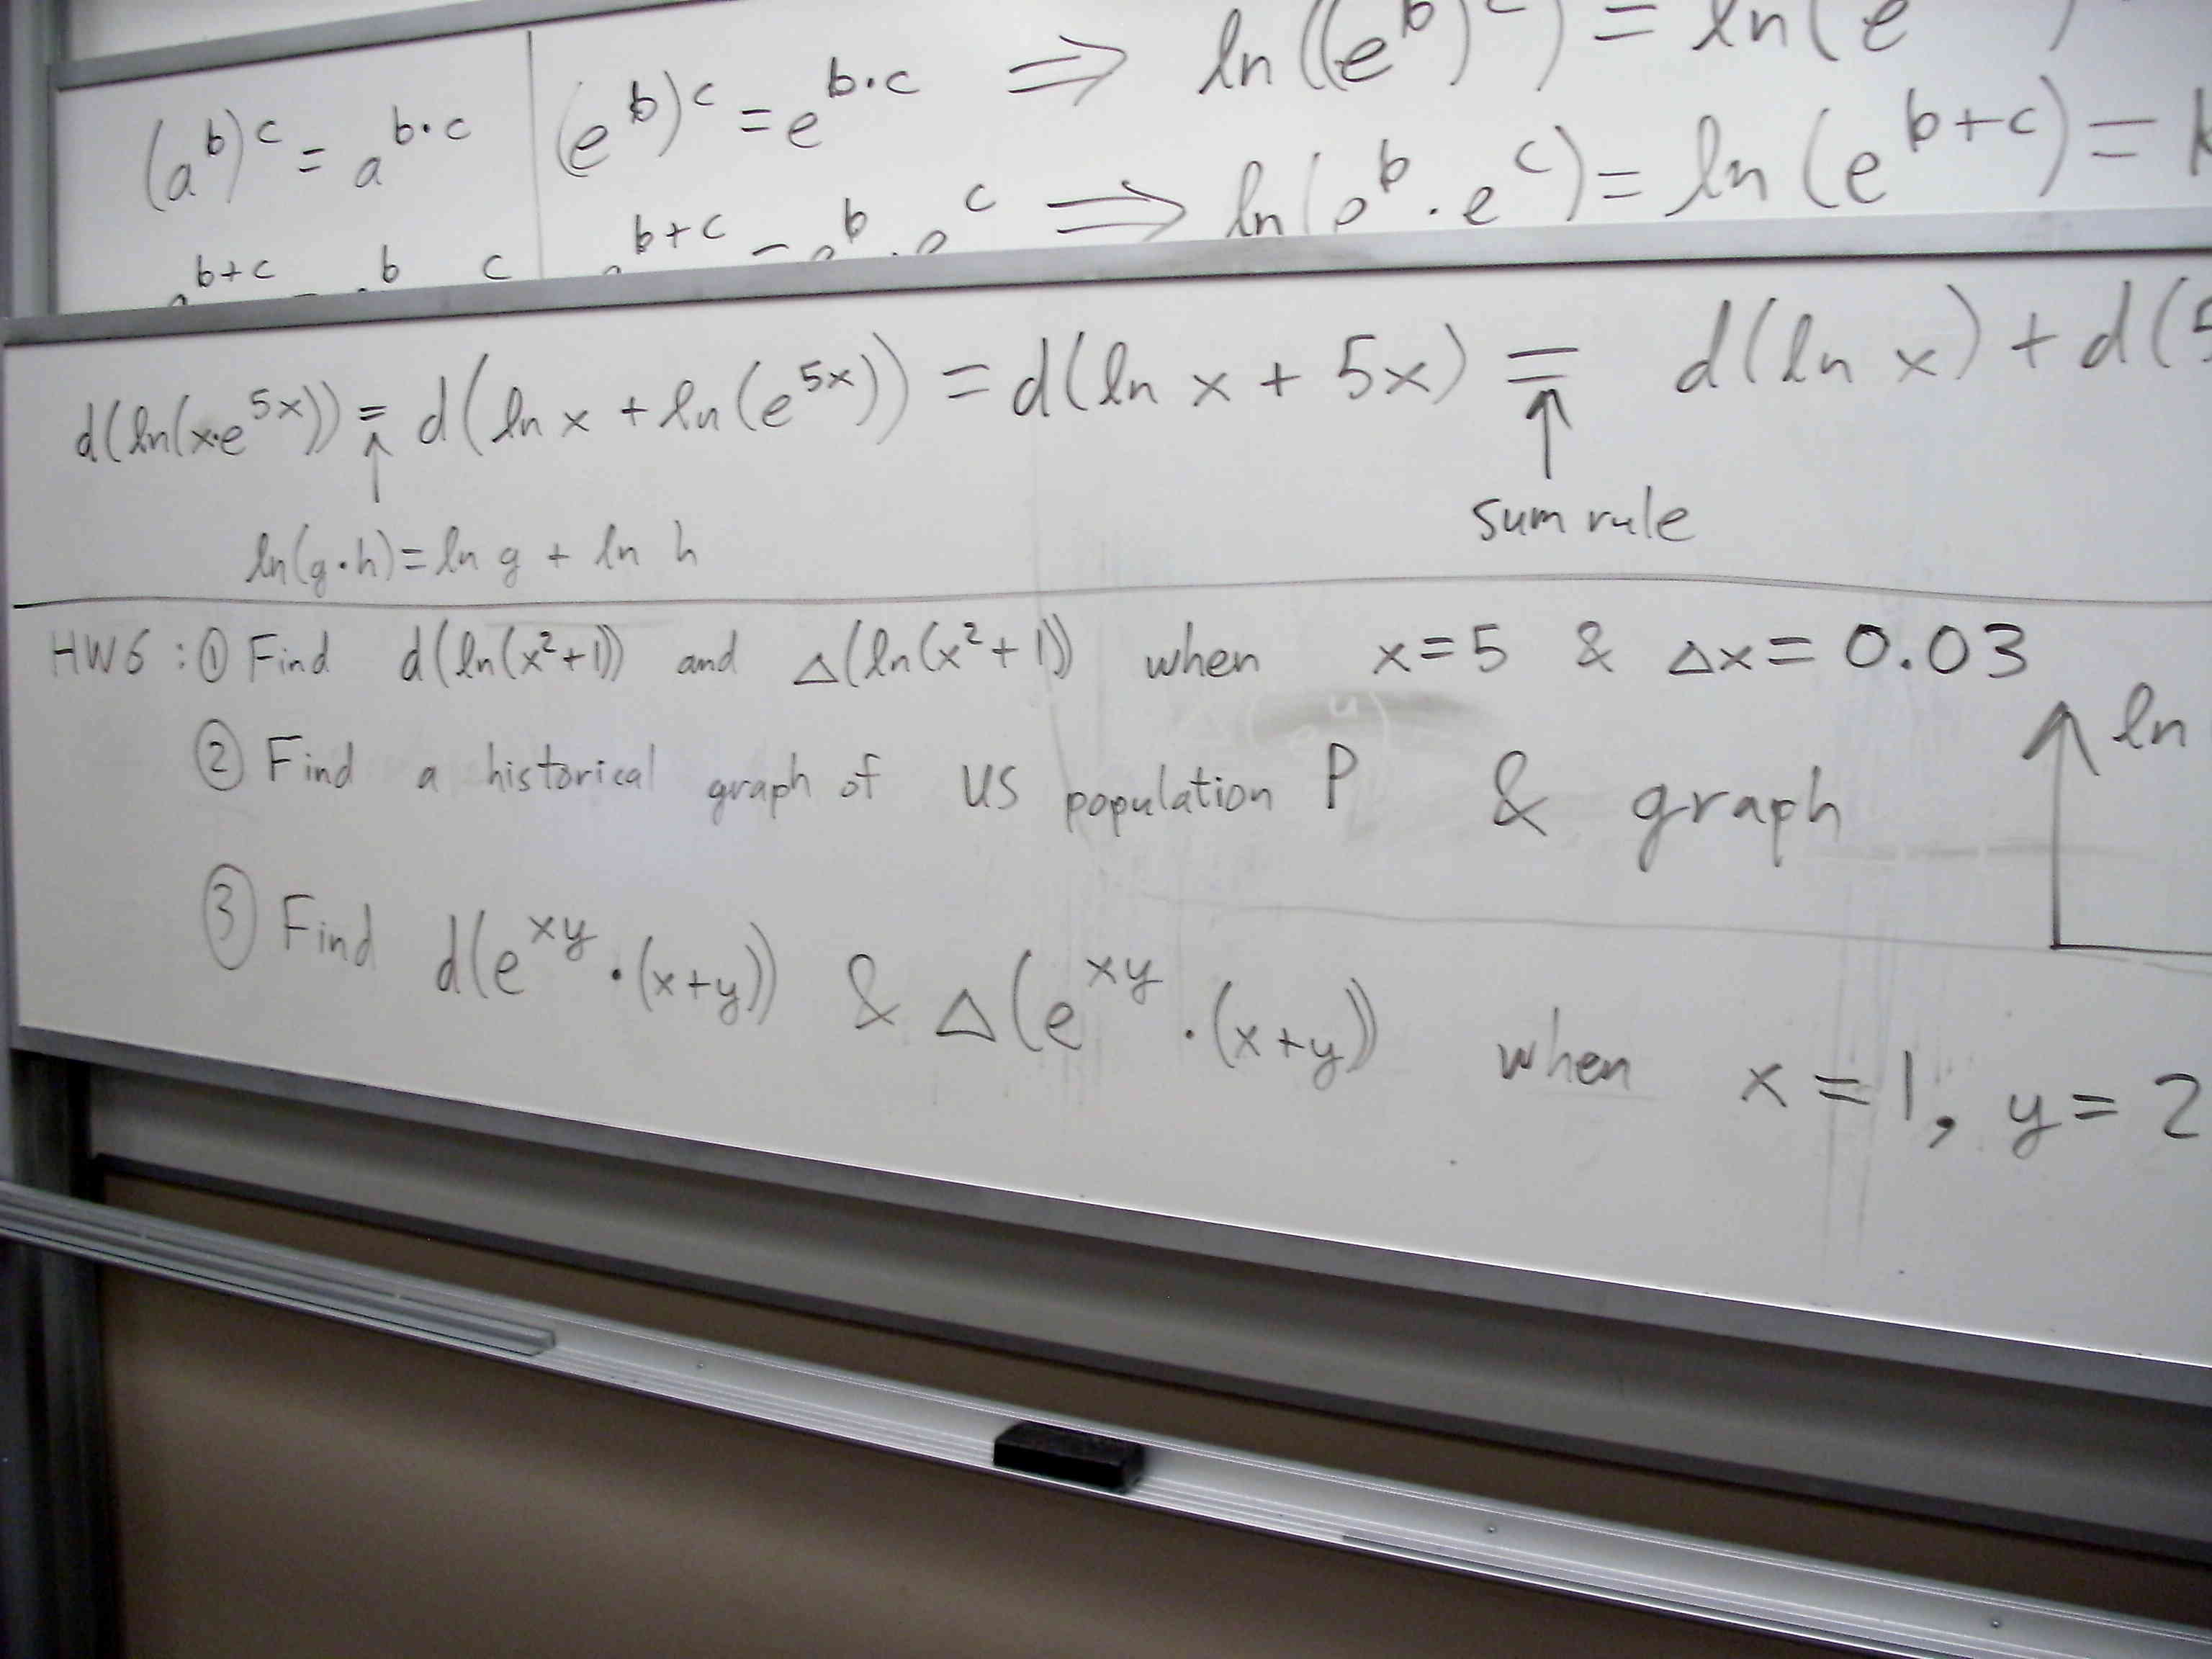 (a^b)^c = a^{b·c} (e^b)^c = e^{b·c} ⟹ ln((e^b)^c) = ln(e
b+c b c b+c = e^b · e^c ⟹ ln(e^b · e^c) = ln(e^{b+c}) =
d(ln(x·e^{5x})) = d(ln x + ln(e^{5x})) = d(ln x + 5x) = d(ln x) + d(5
↑ ↑
ln(g·h) = ln g + ln h sum rule
HW6: ① Find d(ln(x²+1)) and Δ(ln(x²+1)) when x=5 & Δx=0.03
② Find a historical graph of US population P & graph ln
③ Find d(e^{xy}·(x+y)) & Δ(e^{xy}·(x+y)) when x=1, y=2